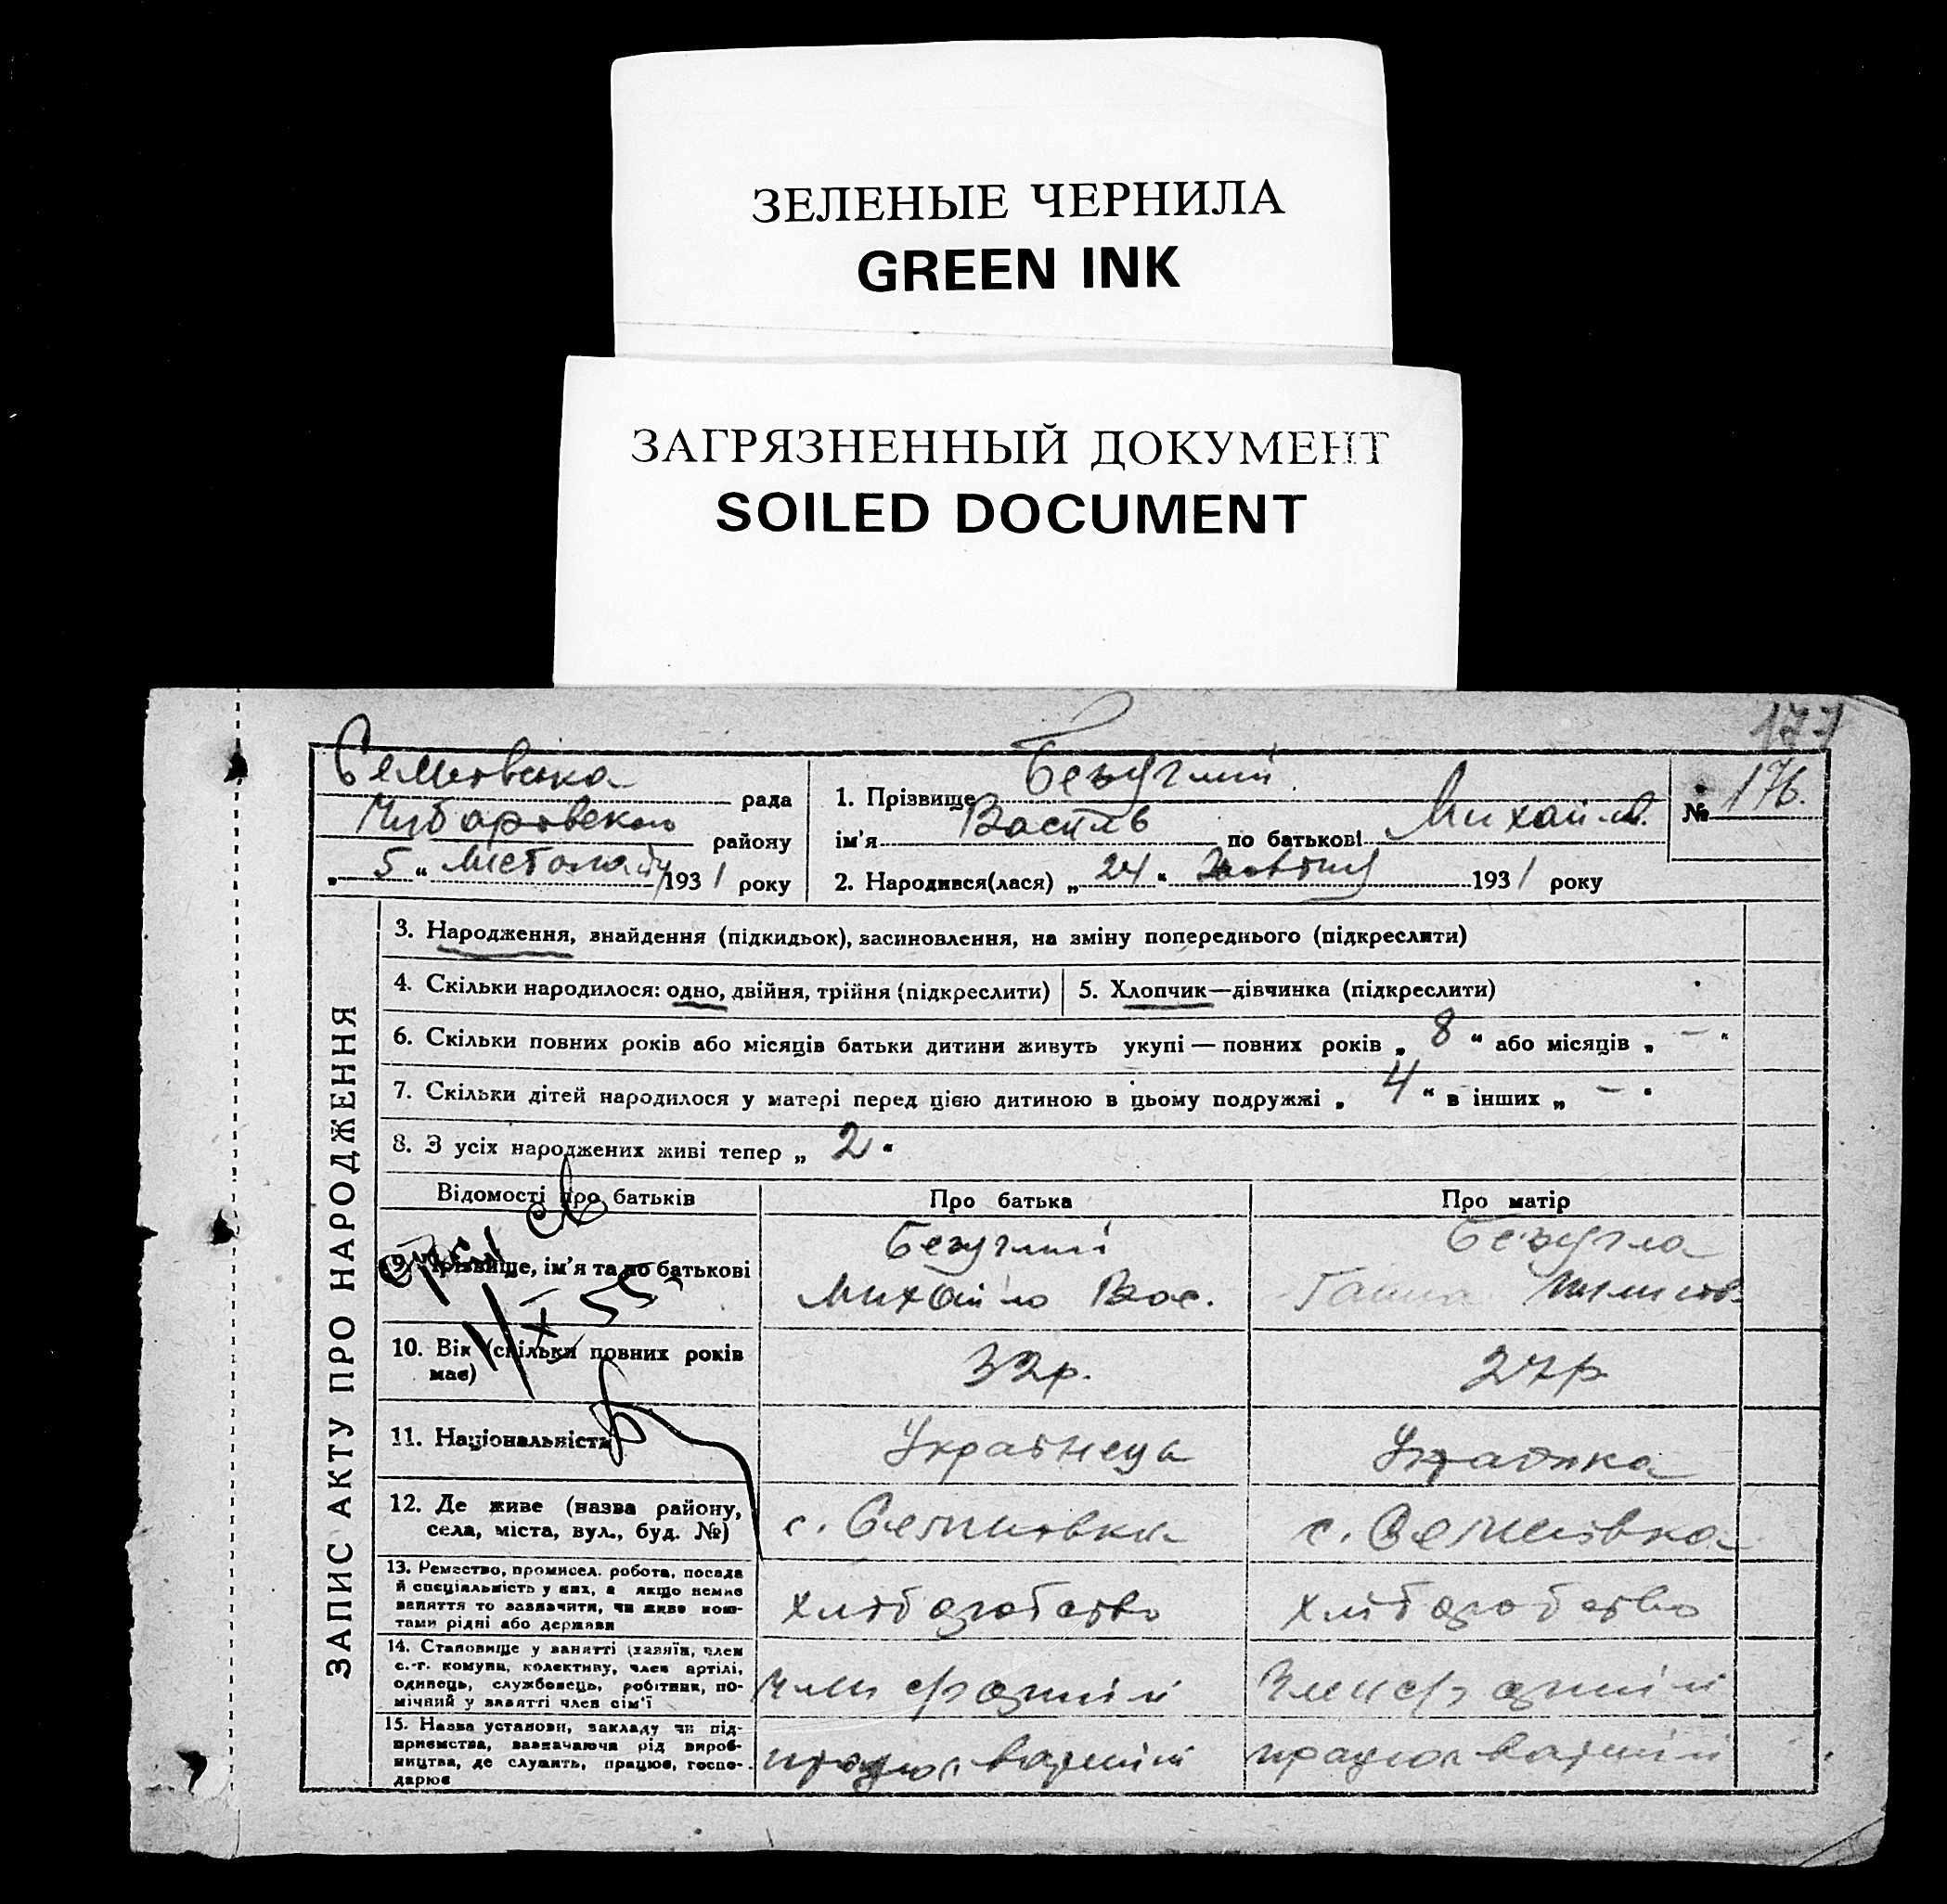 ЗЕЛЕНЫЕ ЧЕРНИЛА
GREEN INK
ЗАГРЯЗНЕННЫЙ ДОКУМЕНТ
SOILED DOCUMENT
177
рада
Чубаровского району
„ 5 “ листопаду 1931 року
1. Прізвище Безуглий
ім'я Василь по батькові Михайл.
№ 176.
2. Народився(лася) „ 24 “ Жовтня 1931 року
ЗАПИС АКТУ ПРО НАРОДЖЕННЯ
3. Народження, знайдення (підкидьок), засиновлення, на зміну попереднього (підкреслити)
4. Скільки народилося: одно, двійня, трійня (підкреслити)
5. Хлопчик—дівчинка (підкреслити)
6. Скільки повних років або місяців батьки дитини живуть укупі — повних років „ 8 “ або місяців „ — “
7. Скільки дітей народилося у матері перед цією дитиною в цьому подружжі „ 4 “ в інших „ — “
8. З усіх народжених живі тепер „ 2 “
Відомості про батьків
Про батька
Про матір
9. Прізвище, ім'я та по батькові
Безуглий
Михайло Вас.
Безугла
Ганна
10. Вік (скільки повних років
має)
32р.
27р.
11. Національність
Українець
Українка
12. Де живе (назва району,
села, міста, вул., буд. №)
с.
с.
13. Ремество, промисел. робота, посада
й спеціальність у них, а якщо немає
заняття то зазначити, чи живе кош-
тами рідні або держави
хліборобство
хліборобство
14. Становище у занятті (хазяїн, член
с.-г. комуни, колективу, член артілі,
одинець, службовець, робітник, по-
мічний у занятті член сім'ї
15. Назва установи, закладу чи під-
приємства, зазначаючи рід вироб-
ництва, де служить, працює, госпо-
дарює